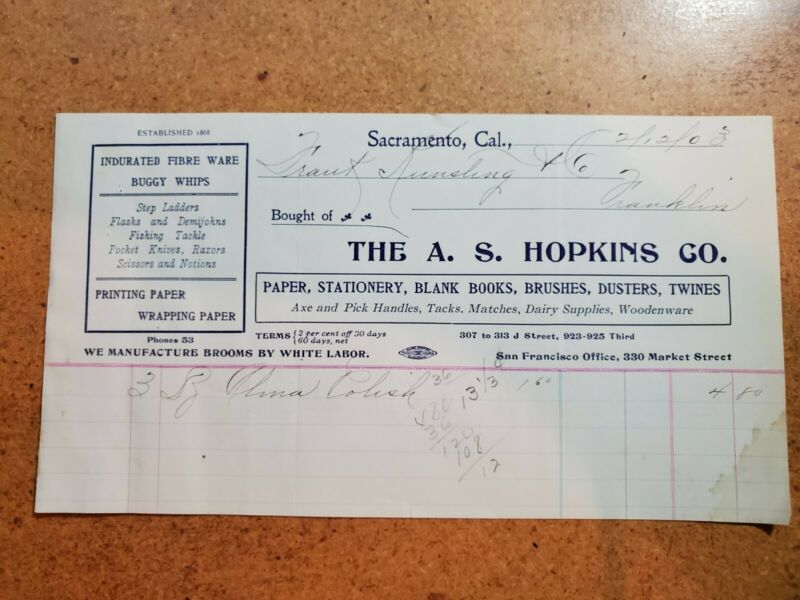 ESTABLISHED 1868
INDURATED FIBRE WARE
BUGGY WHIPS
Step Ladders
Flasks and Demijohns
Fishing Tackle
Pocket Knives, Razors
Scissors and Notions
PRINTING PAPER
WRAPPING PAPER
Phones 53
WE MANUFACTURE BROOMS BY WHITE LABOR.
Sacramento, Cal., 2/12/03
Frank & Co
Franklin
Bought of
THE A. S. HOPKINS CO.
PAPER, STATIONERY, BLANK BOOKS, BRUSHES, DUSTERS, TWINES
Axe and Pick Handles, Tacks. Matches, Dairy Supplies, Woodenware
TERMS { 2 per cent off 30 days
{ 60 days, net
307 to 313 J Street, 923-925 Third
San Francisco Office, 330 Market Street
3 Polish 1 60 4 80
36
13 1/3
480
36/120
108
/12